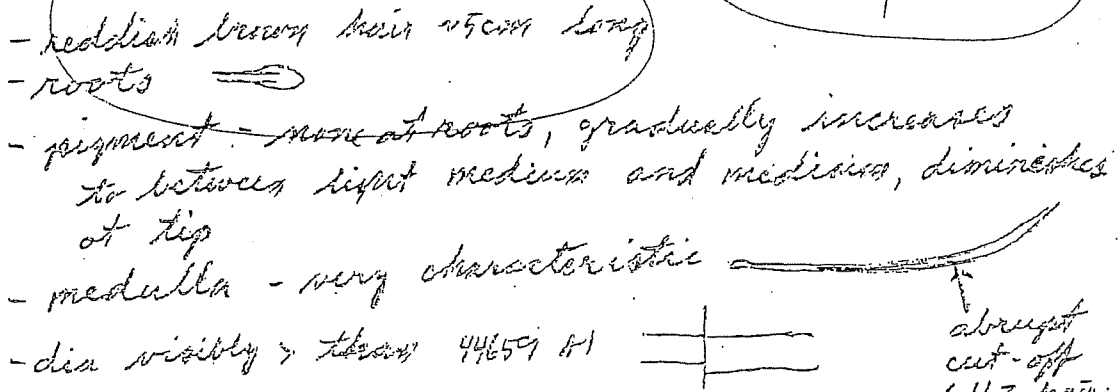 - reddish brown hair ~5cm long
- roots
- pigment - none at roots, gradually increases
to between light medium and medium, diminishes
at tip
- medulla - very characteristic
- dia visibly > than 44659 A1
abrupt
cut-off